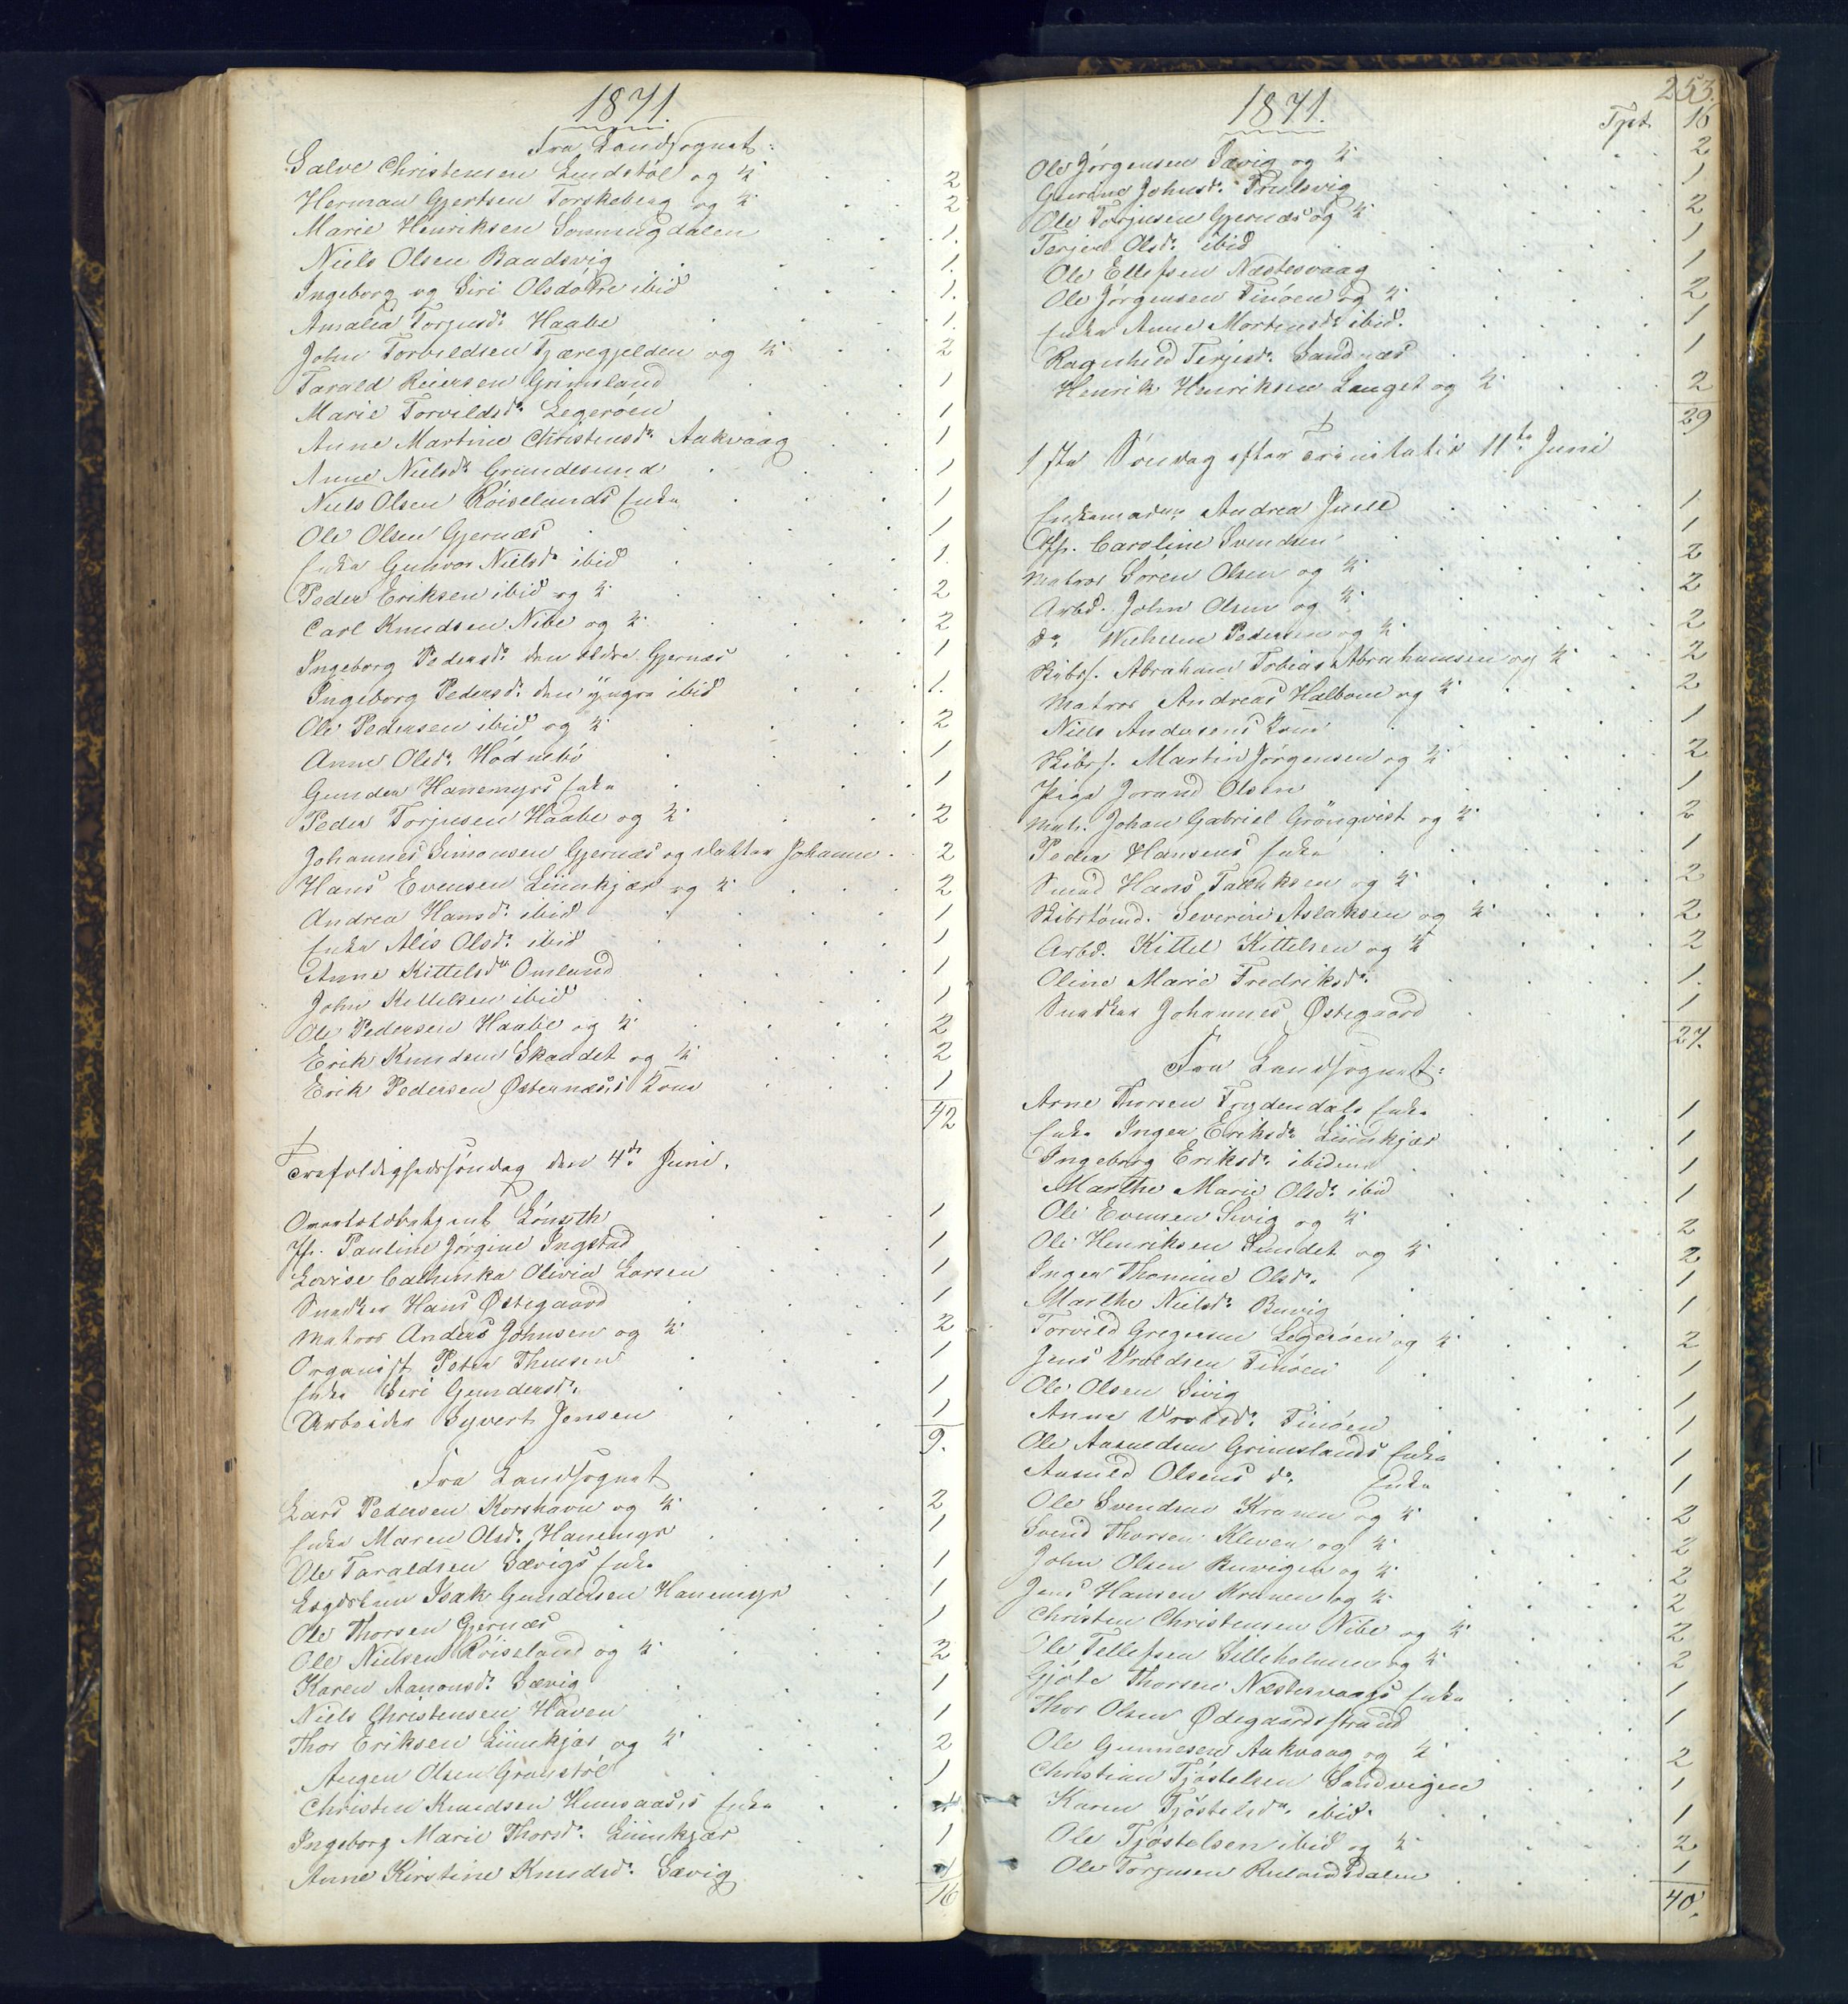 1871.
Fra Landsognet:
Salve Christensen Lindstøl og K: 2
Herman Gjertsen Torskeberg og K: 2
Marie Henriksen 1.
Niels Olsen Baadsvig 1.
Ingeborg og Siri Olsdøtre ibid 1.
Amalia Torjusd: Haabe 1.
John Torvildsen Tjæregjelden og K: 2
Tarald Reiersen Grimsland 1
Marie Torvildsd: Legerøen 1
Anne Martine Christensd: Aakvaag 1
Anne Nielsd: Grundesund 1
Niels Olsen Røiselands Enke 1
Ole Olsen Gjernæs 1
Enke Gunvor Nielsd: ibid 1.
Peder Eriksen ibid og K: 2
Carl Knudsen Nibe og K: 2
Ingeborg Pedersd: den ældre Gjernæs 1
Ingeborg Pedersd: den yngre ibid 1.
Ole Pedersen ibid og K: 2
Anne Olsd: Hødnebø 1
Gunder Hanemyrs Enke 1
Peder Torjusen Haabe og K: 2
Johannes Simonsen Gjernæs og Datter Johanne 2
Hans Evensen Liimkjær og K: 2
Andrea Hansd: ibid 1
Enke Alis Olsd: ibid 1
Anne Kittelsd: Omland 1
John Kittelsen ibid 1
Ole Pedersen Haabe og K: 2
Erik Knudsen Skaadet og K: 2
Erik Pedersen Østernæs's Kone 1
42
Trefoldighedssøndag den 4de Juni.
Overtoldbetjent Lønseth 1
Jfr. Pauline Jørgine Ingstad 1
Lovise Cathinka Olivia Larsen 1
Snedker Hans Østegaard 1
Matros Anders Johnsen og K: 2
Organist Peter Thulsen 1
Enke Siri Gundersd: 1
Arbeider Syvert Jensen 1
9.
Fra Landsognet
Lars Pedersen Korshavn og K: 2
Enke Maren Olsd: Hanemyr 1
Ole Taraldsen Sævigs Enke 1
Lægdslem Isak Gundersen Hanemyr 1
Ole Thorsen Gjernæs 1
Ole Nielsen Røiseland og K: 2
Karen Aanonsd: Sævig 1
Niels Christensen Haven 1
Thor Eriksen Liimkjær og K: 2
Augen Olsen Gromstøl 1
Christen Knudsen Humaas's Enke 1
Ingeborg Marie Thorsd: Liimkjær 1
Anne Kirstine Knudsd: Sævig 1
16
253.
1871.
Tpt. 16
Ole Jørgensen Sævig og K: 2
Gurine Johnsd: 1
Ole Torjusen Gjernæs og K: 2
Terjer Olsd: ibid 1
Ole Ellefsen Næstesvaag 1
Ole Jørgensen Tinøen og K: 2
Enke Anne Mortensd: ibid. 1
Ragnhild Terjesd: Sandnæs 1
Henrik Henriksen Lauget og K: 2
29
1ste Søndag efter Trinitatis 11te Juni
Enkemadm: Andrea Juell 1
Jfr. Caroline Svendsen 1
Matros Søren Olsen og K: 2
Arbd. John Olsen og K: 2
Do Wilhelm Pedersen og K: 2
Skibsf. Abraham Tobias Abrahamsen og K: 2
Matros Andreas Halbom og K: 2
Niels Andersens Kone 1
Skibsf. Martin Jørgensen og K: 2
Pige Jorand Olsen 1
Matr. Johan Gabriel Grönqvist og K: 2
Peder Hansens Enke 1
Smed Hans Fredriksen og K: 2
Skibstømd. Severin Aslaksen og K: 2
Arbd. Kittel Kittelsen og K: 2
Oline Marie Fredriksd: 1.
Snedker Johannes Østegaard 1
27.
Fra Landsognet:
Arne Thorsen Frydendals Enke 1
Enke Inger Eriksd: Liimkjær 1
Ingeborg Eriksd: ibidem 1
Marthe Marie Olsd: ibid 1
Ole Evensen Sivig og K: 2
Ole Henriksen Sundet og K: 2
Inger Thomine Olsd: 1
Marthe Nielsd: Buvig 1
Torvild Gregersen Legerøen og K: 2
Jens Vraldsen Tinøen 1
Ole Olsen Sivig 1
Anne Vraldsd: Tinøen 1
Ole Aasuldsen Grimslands Enke 1
Aasuld Olsens do. Enke 1
Ole Svendsen Kranen og K: 2
Svend Thorsen Kleven og K: 2
John Olsen Buvigen og K: 2
Jens Hansen Kranen og K: 2
Christen Christensen Nibe og K: 2
Ole Tellefsen Silleholmen og K: 2
Gjøle Thorsen Næstesvaags Enke 1
Thor Olsen Ødegaardsstrand 1
Ole Gunnesen Aakvaag og K: 2
Christian Tjøstelsen Sandvigen 1
Karen Tjøstelsd: ibid. 1
Ole Tjøstelsen ibid og K: 2
Ole Torjusen 1
40.